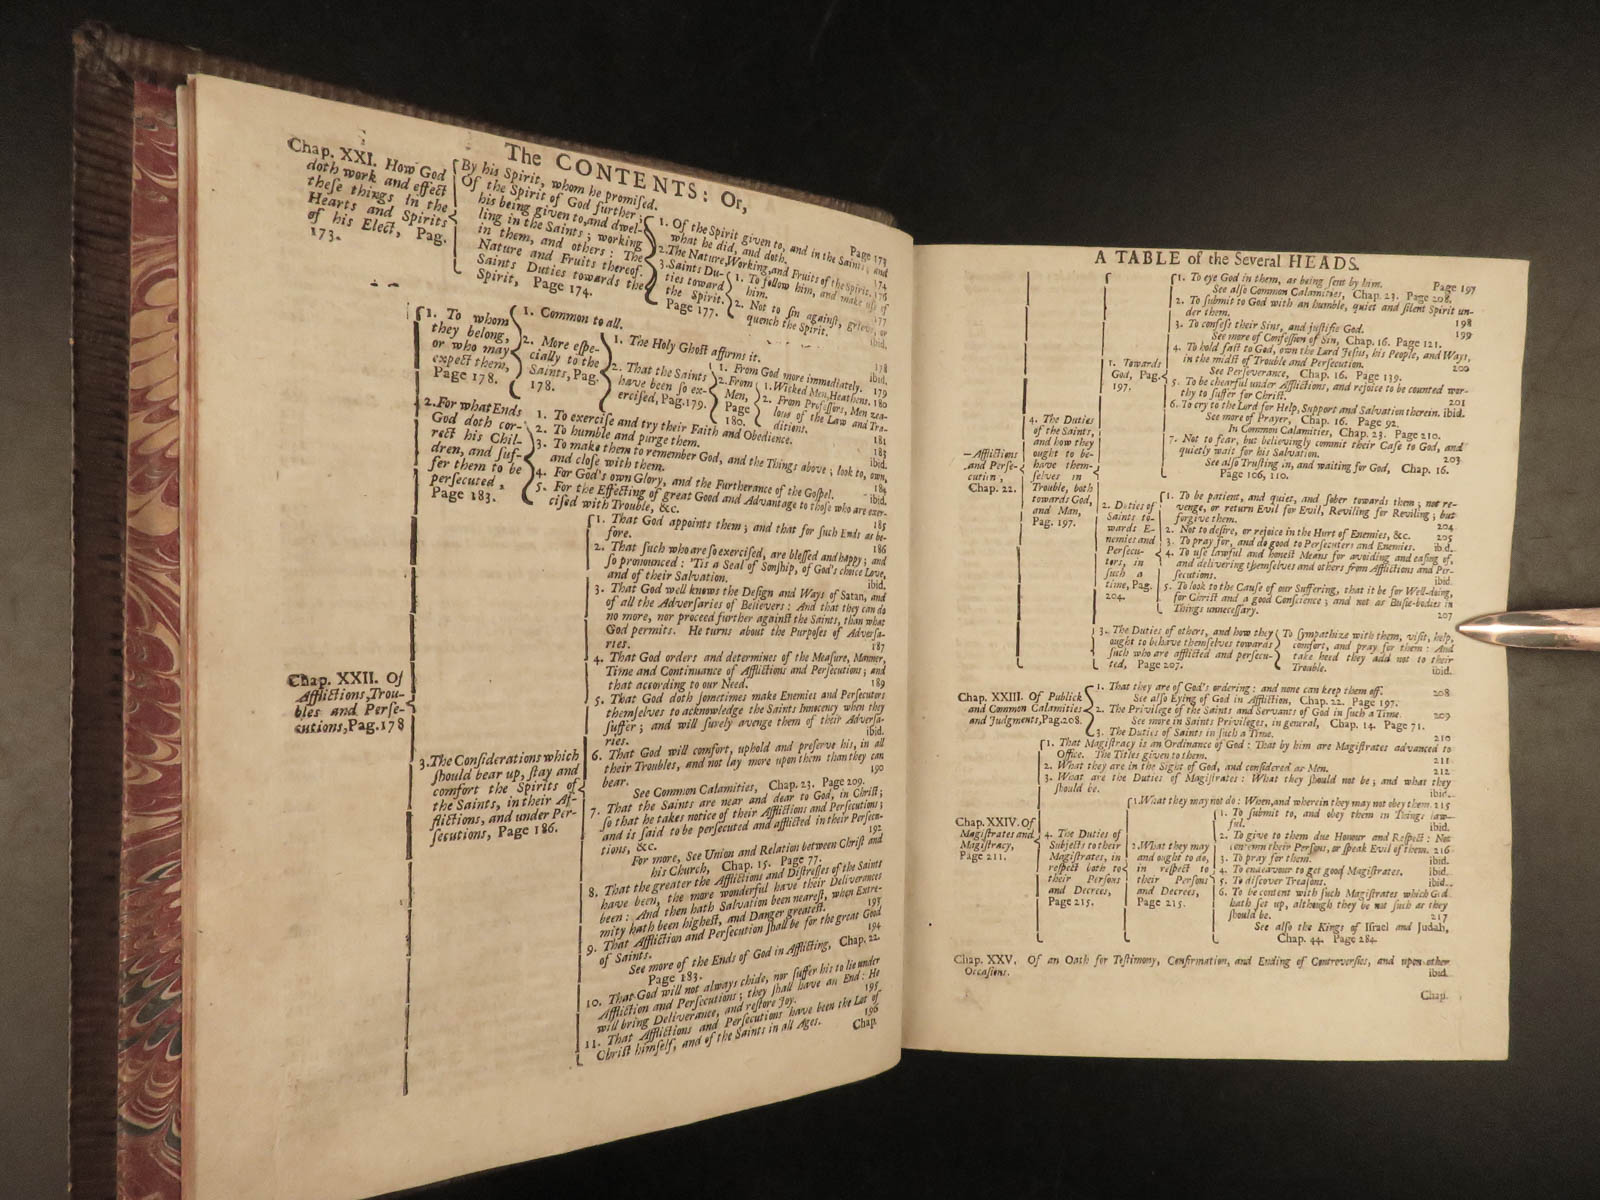 The CONTENTS: Or,
Chap. XXI. How God
doth work and effect
theſe things in the
Hearts and Spirits
of his Elect, Pag.
173.
By his Spirit, whom he promiſed.
Page 173
Of the Spirit of God further;
his being given to, and dwel-
ling in the Saints; working
in them, and others: The
Nature and Fruits thereof.
Saints Duties towards the
Spirit, Page 174.
1. Of the Spirit given to, and in the Saints; and
what he did, and doth.
174
2. The Nature, Working, and Fruits of the Spirit. 176
3. Saints Du-
ties toward
the Spirit.
Page 177.
1. To follow him, and make uſe of
him.
177
2. Not to ſin againſt, grieve, or
quench the Spirit.
ibid.
Chap. XXII. Of
Afflictions, Trou-
bles and Perſe-
cutions, Pag. 178
1. To whom
they belong,
or who may
expect them,
Page 178.
1. Common to all.
178
2. More eſpe-
cially to the
Saints, Pag.
178.
1. The Holy Ghoſt affirms it.
ibid.
2. That the Saints
have been ſo ex-
erciſed, Pag. 179.
1. From God more immediately. 179
2. From
Men,
Page
180.
1. Wicked Men, Heathens. 180
2. From Profeſſors, Men zea-
lous of the Law and Tra-
ditions.
181
2. For what Ends
God doth cor-
rect his Chil-
dren, and ſuf-
fer them to be
perſecuted,
Page 183.
1. To exerciſe and try their Faith and Obedience.
183
2. To humble and purge them.
ibid.
3. To make them to remember God, and the Things above; look to, own,
and cloſe with them.
184
4. For God's own Glory, and the Furtherance of the Goſpel.
ibid.
5. For the Effecting of great Good and Advantage to thoſe who are exer-
ciſed with Trouble, &c.
185
3. The Conſiderations which
ſhould bear up, ſtay and
comfort the Spirits of
the Saints, in their Af-
flictions, and under Per-
ſecutions, Page 186.
1. That God appoints them; and that for ſuch Ends as be-
fore.
186
2. That ſuch who are ſo exerciſed, are bleſſed and happy; and
ſo pronounced: 'Tis a Seal of Sonſhip, of God's choice Love,
and of their Salvation.
ibid.
3. That God well knows the Deſign and Ways of Satan, and
of all the Adverſaries of Believers: And that they can do
no more, nor proceed further againſt the Saints, than what
God permits. He turns about the Purpoſes of Adverſa-
ries.
187
4. That God orders and determines of the Meaſure, Manner,
Time and Continuance of Afflictions and Perſecutions; and
that according to our Need.
189
5. That God doth ſometimes make Enemies and Perſecutors
themſelves to acknowledge the Saints Innocency when they
ſuffer; and will ſurely avenge them of their Adverſa-
ries.
ibid.
6. That God will comfort, uphold and preſerve his, in all
their Troubles, and not lay more upon them than they can
bear.
190
See Common Calamities, Chap. 23. Page 209.
7. That the Saints are near and dear to God, in Chriſt;
ſo that he takes notice of their Afflictions and Perſecutions;
and is ſaid to be perſecuted and afflicted in their Perſecu-
tions, &c.
192
For more, See Union and Relation between Chriſt and
his Church, Chap. 15. Page 77.
8. That the greater the Afflictions and Diſtreſſes of the Saints
have been, the more wonderful have their Deliverances
been: And then hath Salvation been neareſt, when Extre-
mity hath been higheſt, and Danger greateſt.
193
9. That Affliction and Perſecution ſhall be for the great Good
of Saints.
194
See more of the Ends of God in Afflicting, Chap. 22.
Page 183.
10. That God will not always chide, nor ſuffer his to lie under
Affliction and Perſecutions; they ſhall have an End: He
will bring Deliverance, and reſtore Joy.
195
11. That Afflictions and Perſecutions have been the Lot of
Chriſt himſelf, and of the Saints in all Ages.
196
Chap.
A TABLE of the Several HEADS.
—Afflictions
and Perſe-
cution,
Chap. 22.
4. The Duties
of the Saints,
and how they
ought to be-
have them-
ſelves in
Trouble, both
towards God,
and Man,
Pag. 197.
1. Towards
God, Pag.
197.
1. To eye God in them, as being ſent by him.
Page 197
See alſo Common Calamities, Chap. 23. Page 208.
2. To ſubmit to God with an humble, quiet and ſilent Spirit un-
der them.
198
3. To confeſs their Sins, and juſtifie God.
199
See more of Confeſſion of Sin, Chap. 16. Page 121.
4. To hold faſt to God, own the Lord Jeſus, his People, and Ways,
in the midſt of Trouble and Perſecution.
200
See Perſeverance, Chap. 16. Page 139.
5. To be chearful under Afflictions, and rejoice to be counted wor-
thy to ſuffer for Chriſt.
201
6. To cry to the Lord for Help, Support and Salvation therein. ibid.
See more of Prayer, Chap. 16. Page 92.
In Common Calamities, Chap. 23. Page 210.
7. Not to fear, but believingly commit their Caſe to God, and
quietly wait for his Salvation.
203
See alſo Truſting in, and waiting for God, Chap. 16.
Page 106, 110.
2. Duties of
Saints to-
wards E-
nemies and
Perſecu-
tors, in
ſuch a
time, Pag.
204.
1. To be patient, and quiet, and ſober towards them; not re-
venge, or return Evil for Evil, Reviling for Reviling; but
forgive them.
204
2. Not to deſire, or rejoice in the Hurt of Enemies, &c.
205
3. To pray for, and do good to Perſecuters and Enemies.
ibid.
4. To uſe lawful and honeſt Means for avoiding and eaſing of,
and delivering themſelves and others from Afflictions and Per-
ſecutions.
ibid.
5. To look to the Cauſe of our Suffering, that it be for Well-doing,
for Chriſt and a good Conſcience; and not as Buſie-bodies in
Things unneceſſary.
207
3. The Duties of others, and how they
ought to behave themſelves towards
ſuch who are afflicted and perſecu-
ted, Page 207.
To ſympathize with them, viſit, help,
comfort, and pray for them: And
take heed they add not to their
Trouble.
ibid.
Chap. XXIII. Of Publick
and Common Calamities
and Judgments, Pag. 208.
1. That they are of God's ordering: and none can keep them off.
208
See alſo Eying of God in Affliction, Chap. 22. Page 197.
2. The Privilege of the Saints and Servants of God in ſuch a Time.
209
See more in Saints Privileges, in general, Chap. 14. Page 71.
3. The Duties of Saints in ſuch a Time.
210
Chap. XXIV. Of
Magiſtrates and
Magiſtracy,
Page 211.
1. That Magiſtracy is an Ordinance of God: That by him are Magiſtrates advanced to
Office. The Titles given to them.
211
2. What they are in the Sight of God, and conſidered as Men.
212
3. What are the Duties of Magiſtrates: What they ſhould not be; and what they
ſhould be.
ibid.
4. The Duties of
Subjects to their
Magiſtrates, in
reſpect both to
their Perſons
and Decrees,
Page 215.
1. What they may not do: When, and wherein they may not obey them. 215
2. What they may
and ought to do,
in reſpect to
their Perſons
and Decrees,
Page 215.
1. To ſubmit to, and obey them in Things law-
ful.
ibid.
2. To give to them due Honour and Reſpect: Not
contemn their Perſons, or ſpeak Evil of them. 216
3. To pray for them.
ibid.
4. To endeavour to get good Magiſtrates.
ibid.
5. To diſcover Treaſons.
ibid.
6. To be content with ſuch Magiſtrates which God
hath ſet up, although they be not ſuch as they
ſhould be.
217
See alſo the Kings of Iſrael and Judah,
Chap. 44. Page 284.
Chap. XXV. Of an Oath for Teſtimony, Confirmation, and Ending of Controverſies, and upon other
Occaſions.
ibid.
Chap.